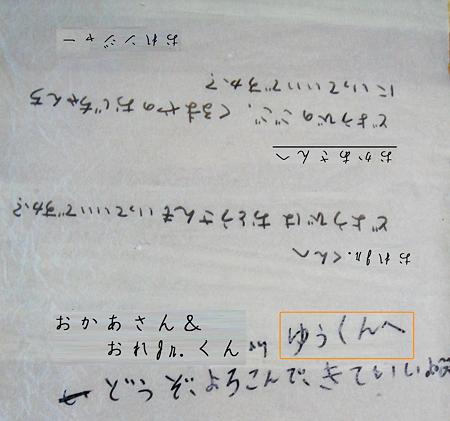 おれJr.くんへ
どようびは おとうさんも いっていいですか？
おかあさんへ
どようびのごご、くるまやのおじちゃんち
にいっていいですか？
おれンジャー
おかあさん&
おれJr.くん より ゆうくんへ
どうぞ よろこんで きて